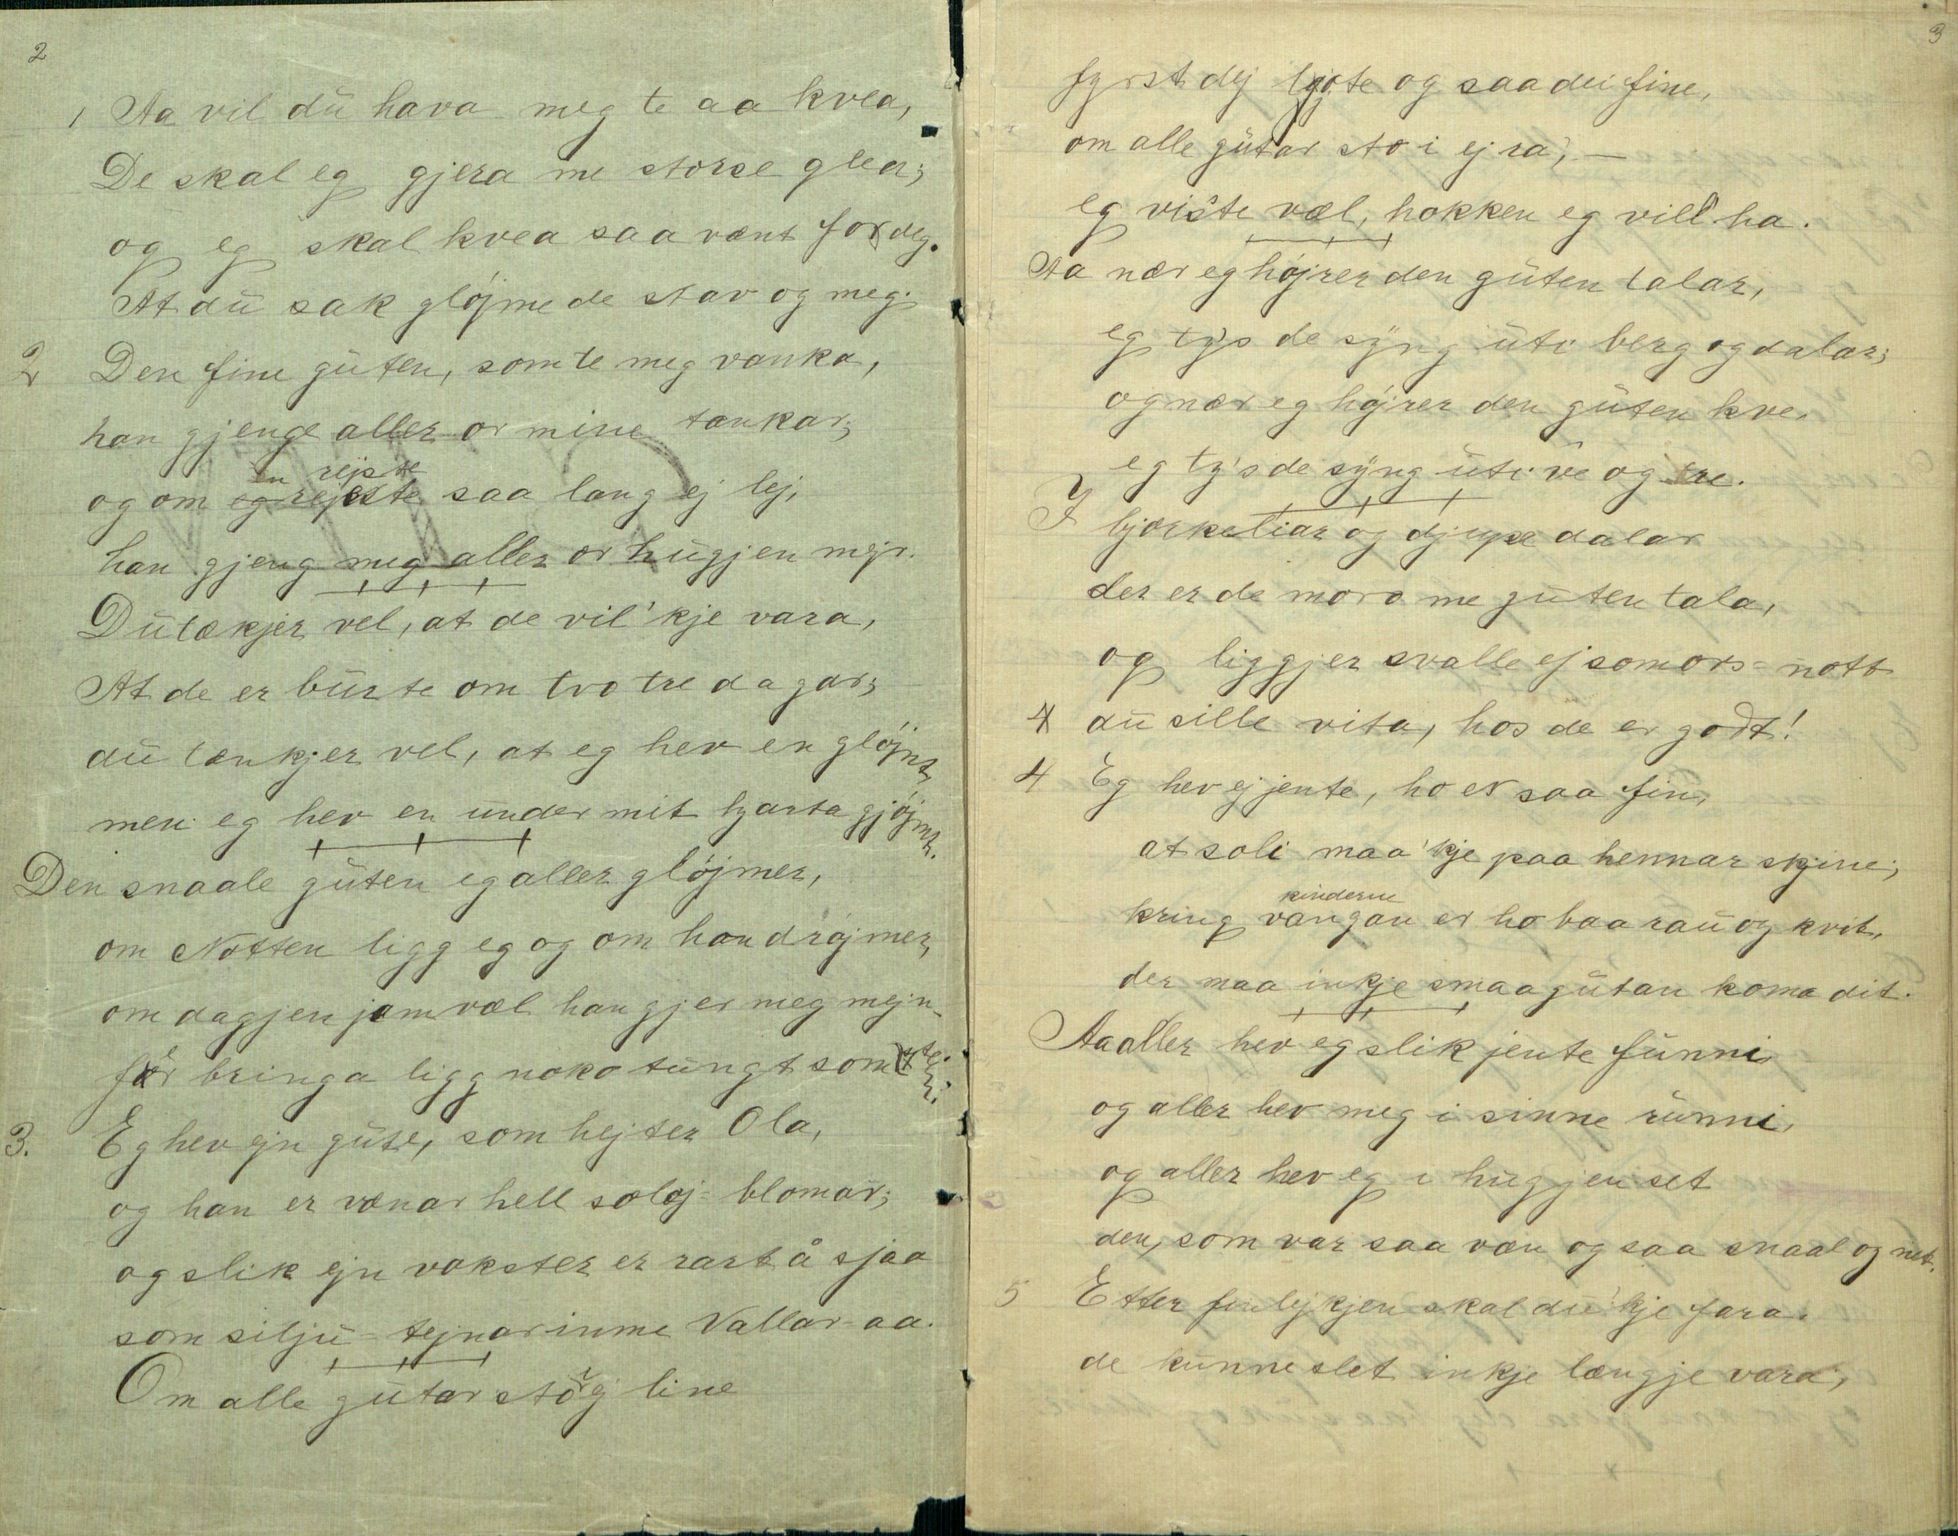 2
1 Aa vil dū hava meg te aa kvea,
De skal eg gjera me storse glea;
og eg skal kvea saa vænt for deg.
At dū sak gløjme de stav og meg.
2 Den fine gūten, som te meg vanka,
han gjenge aller or mine tankar;
en rejste
og om eg rejste saa lang ej lej,
han gjeng meg aller or hūgjen mejr.
Dū tækjer vel, at de vil' kje vara,
At de er būrte om tvo tre dagar;
dū tænkjer vel, at eg hev en gløjmt,
men eg hev en ūnder mit hjarta gjøjmt.
Den snaale gūten eg aller gløjmer,
om Notten ligg eg og om han drøjmer,
om dagjen jamvæl han gjer meg mejn
før bringa ligg noko tūngt som
3. Eg hev ejn gūte, som hejter Ola,
og han er vænar hell soløj-blomar;
og slik ejn vokster er rart å sjaa
som silju-tejnar inme Vallar-aa.
Om alle gūtar sto i ej line
3
fyrst dej ljote og saa dei fine,
om alle gūtar sto i ej ra, —
eg viste væl, hokken eg vill ha.
Aa nær eg højrer den gūten talar,
eg ty's de syng ūti berg og dalar;
og nær eg højrer den gūten kve,
eg ty's de syng ūti ve og tre.
I bjørkeliar og djupe dalar
der er de moro me gūten tala,
og liggjer svalle ej somors-nott
dū sille vita, hos de er godt!
4 Eg hev ej jente, ho er saa fin,
at soli maa 'kje paa hennar skjine;
kinderne
kring vangan er ho baa raū og kvit,
der maa inkje smaagūtan koma dit.
Aa aller hev eg slik jente fūnni
og aller hev meg i sinne rūnni,
og aller hev eg i hūgjen set
den, som var saa væn og saa snaal og net.
5 Etter finlejkjen skal dū 'kje fara.
de kūnne slet inkje længje vara;